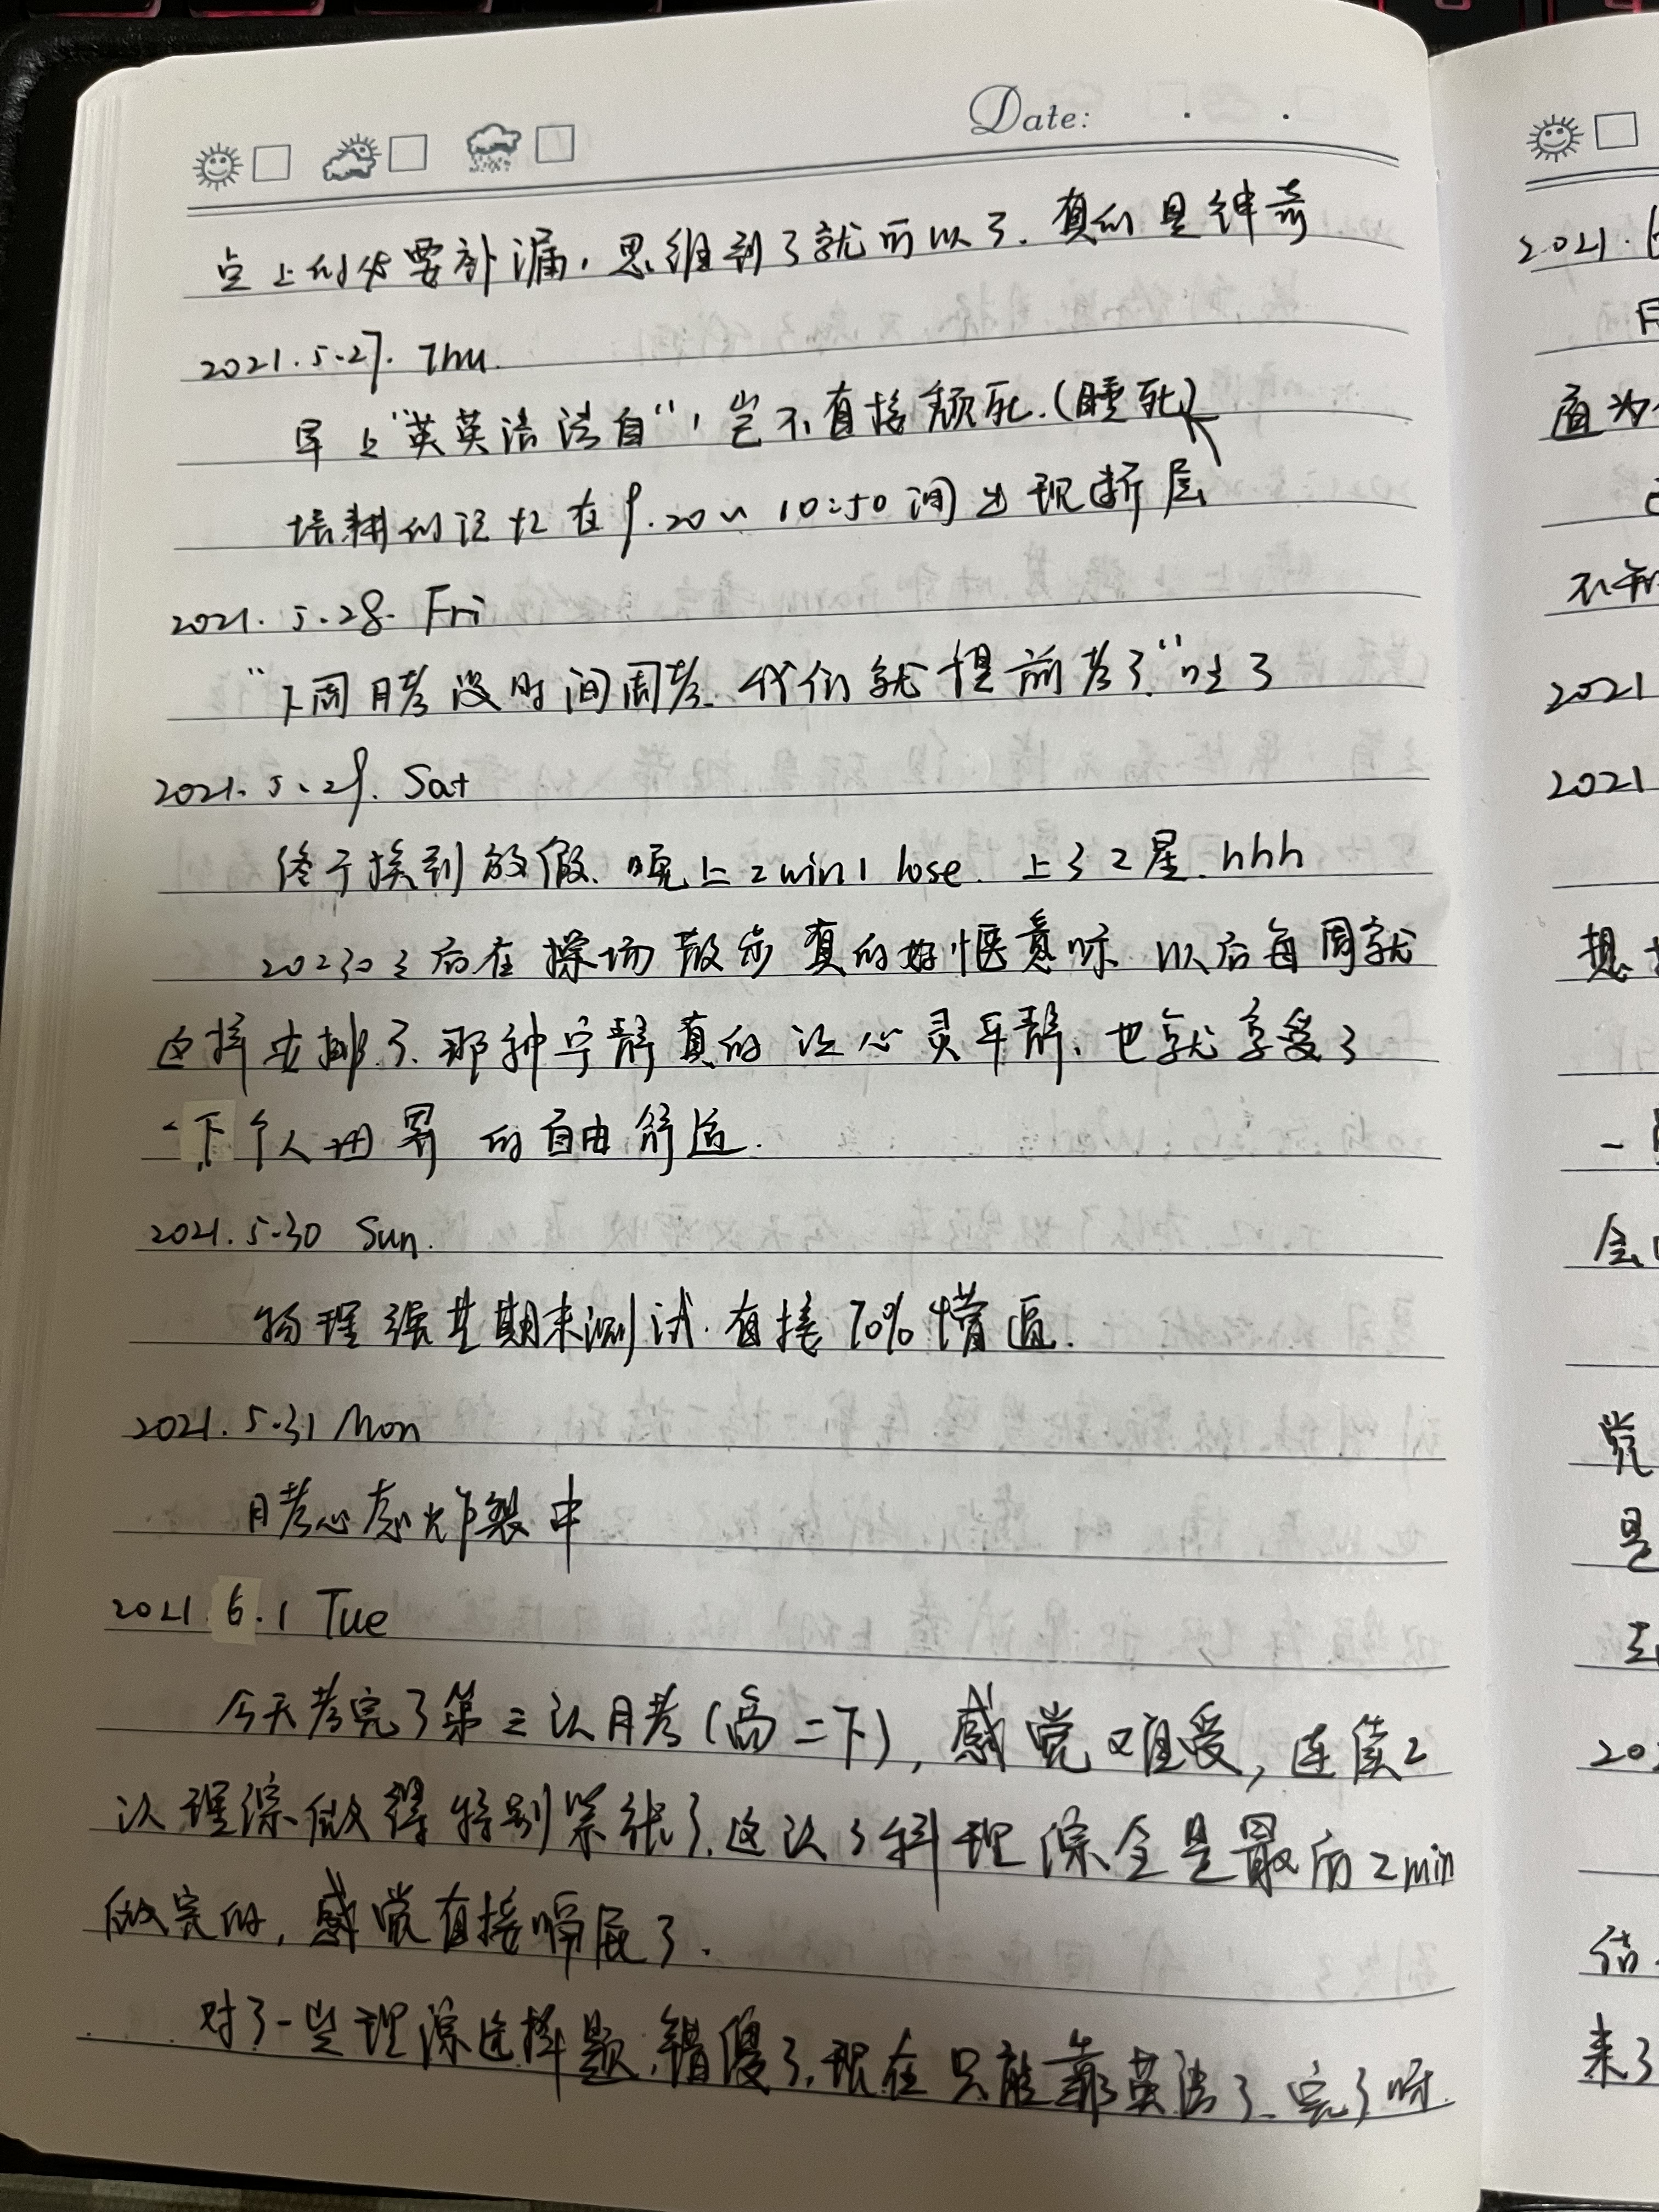 Date: . .
点上的必要补漏，思维到了就可以了．真的是神奇
2021.5.27. Thu.
早上“英英语法自”，岂不直接颓死．(睡死)
培耕的记忆在9.20~10:50间出现断层
2021.5.28. Fri
“下周月考没时间周考．我们就提前考了”吐了
2021.5.29. Sat
终于挨到放假．晚上2win1lose．上了2星．hhh
202302之后在操场散步真的好惬意呀 以后每周就
这样安排了．那种宁静真的让心灵平静．也就享受了
一下个人世界的自由舒适．
2021.5.30 Sun.
物理强基期末测试．直接70%懵逼．
2021.5.31 Mon
月考心态炸裂中
2021.6.1 Tue
今天考完了第三次月考(高二下)，感觉难受，连续2
次理综做得特别紧张了．这次3科理综全是最后2min
做完的，感觉直接嗝屁了．
对了一些理综选择题，错傻了．现在只能靠英语了．完了呀．
2021.6
2021
2021
一
是
来了